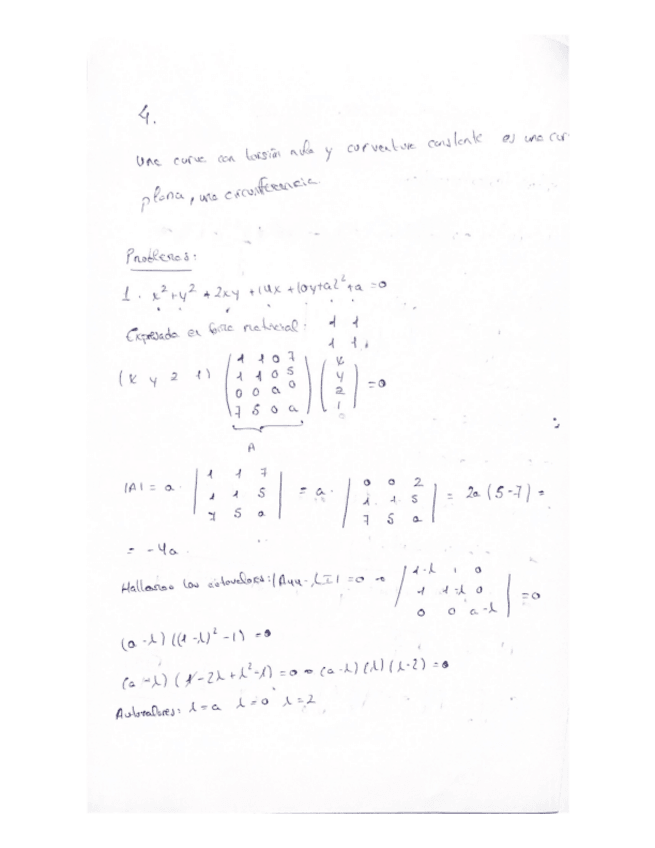 4.
Una curva con torsión nula y curvatura constante es una cur
plana, una circunferencia.
Problemas:
1. x² + y² + 2xy + 14x + 10y + az² + a = 0
Expresado en forma matricial: 1 1
1 1
(x y z 1) (1 1 0 7; 1 1 0 5; 0 0 a 0; 7 5 0 a) (x; y; z; 1) = 0
A
|A| = a · |1 1 7; 1 1 5; 7 5 a| = a · |0 0 2; 1 1 5; 7 5 a| = 2a (5-7) =
= -4a.
Hallamos los autovalores: |A44 - λI| = 0 |1-λ 1 0; 1 1-λ 0; 0 0 a-λ| = 0
(a-λ)((1-λ)² - 1) = 0
(a-λ)(1 - 2λ + λ² - 1) = 0 (a-λ)(λ)(λ-2) = 0
Autovalores: λ=a λ=0 λ=2